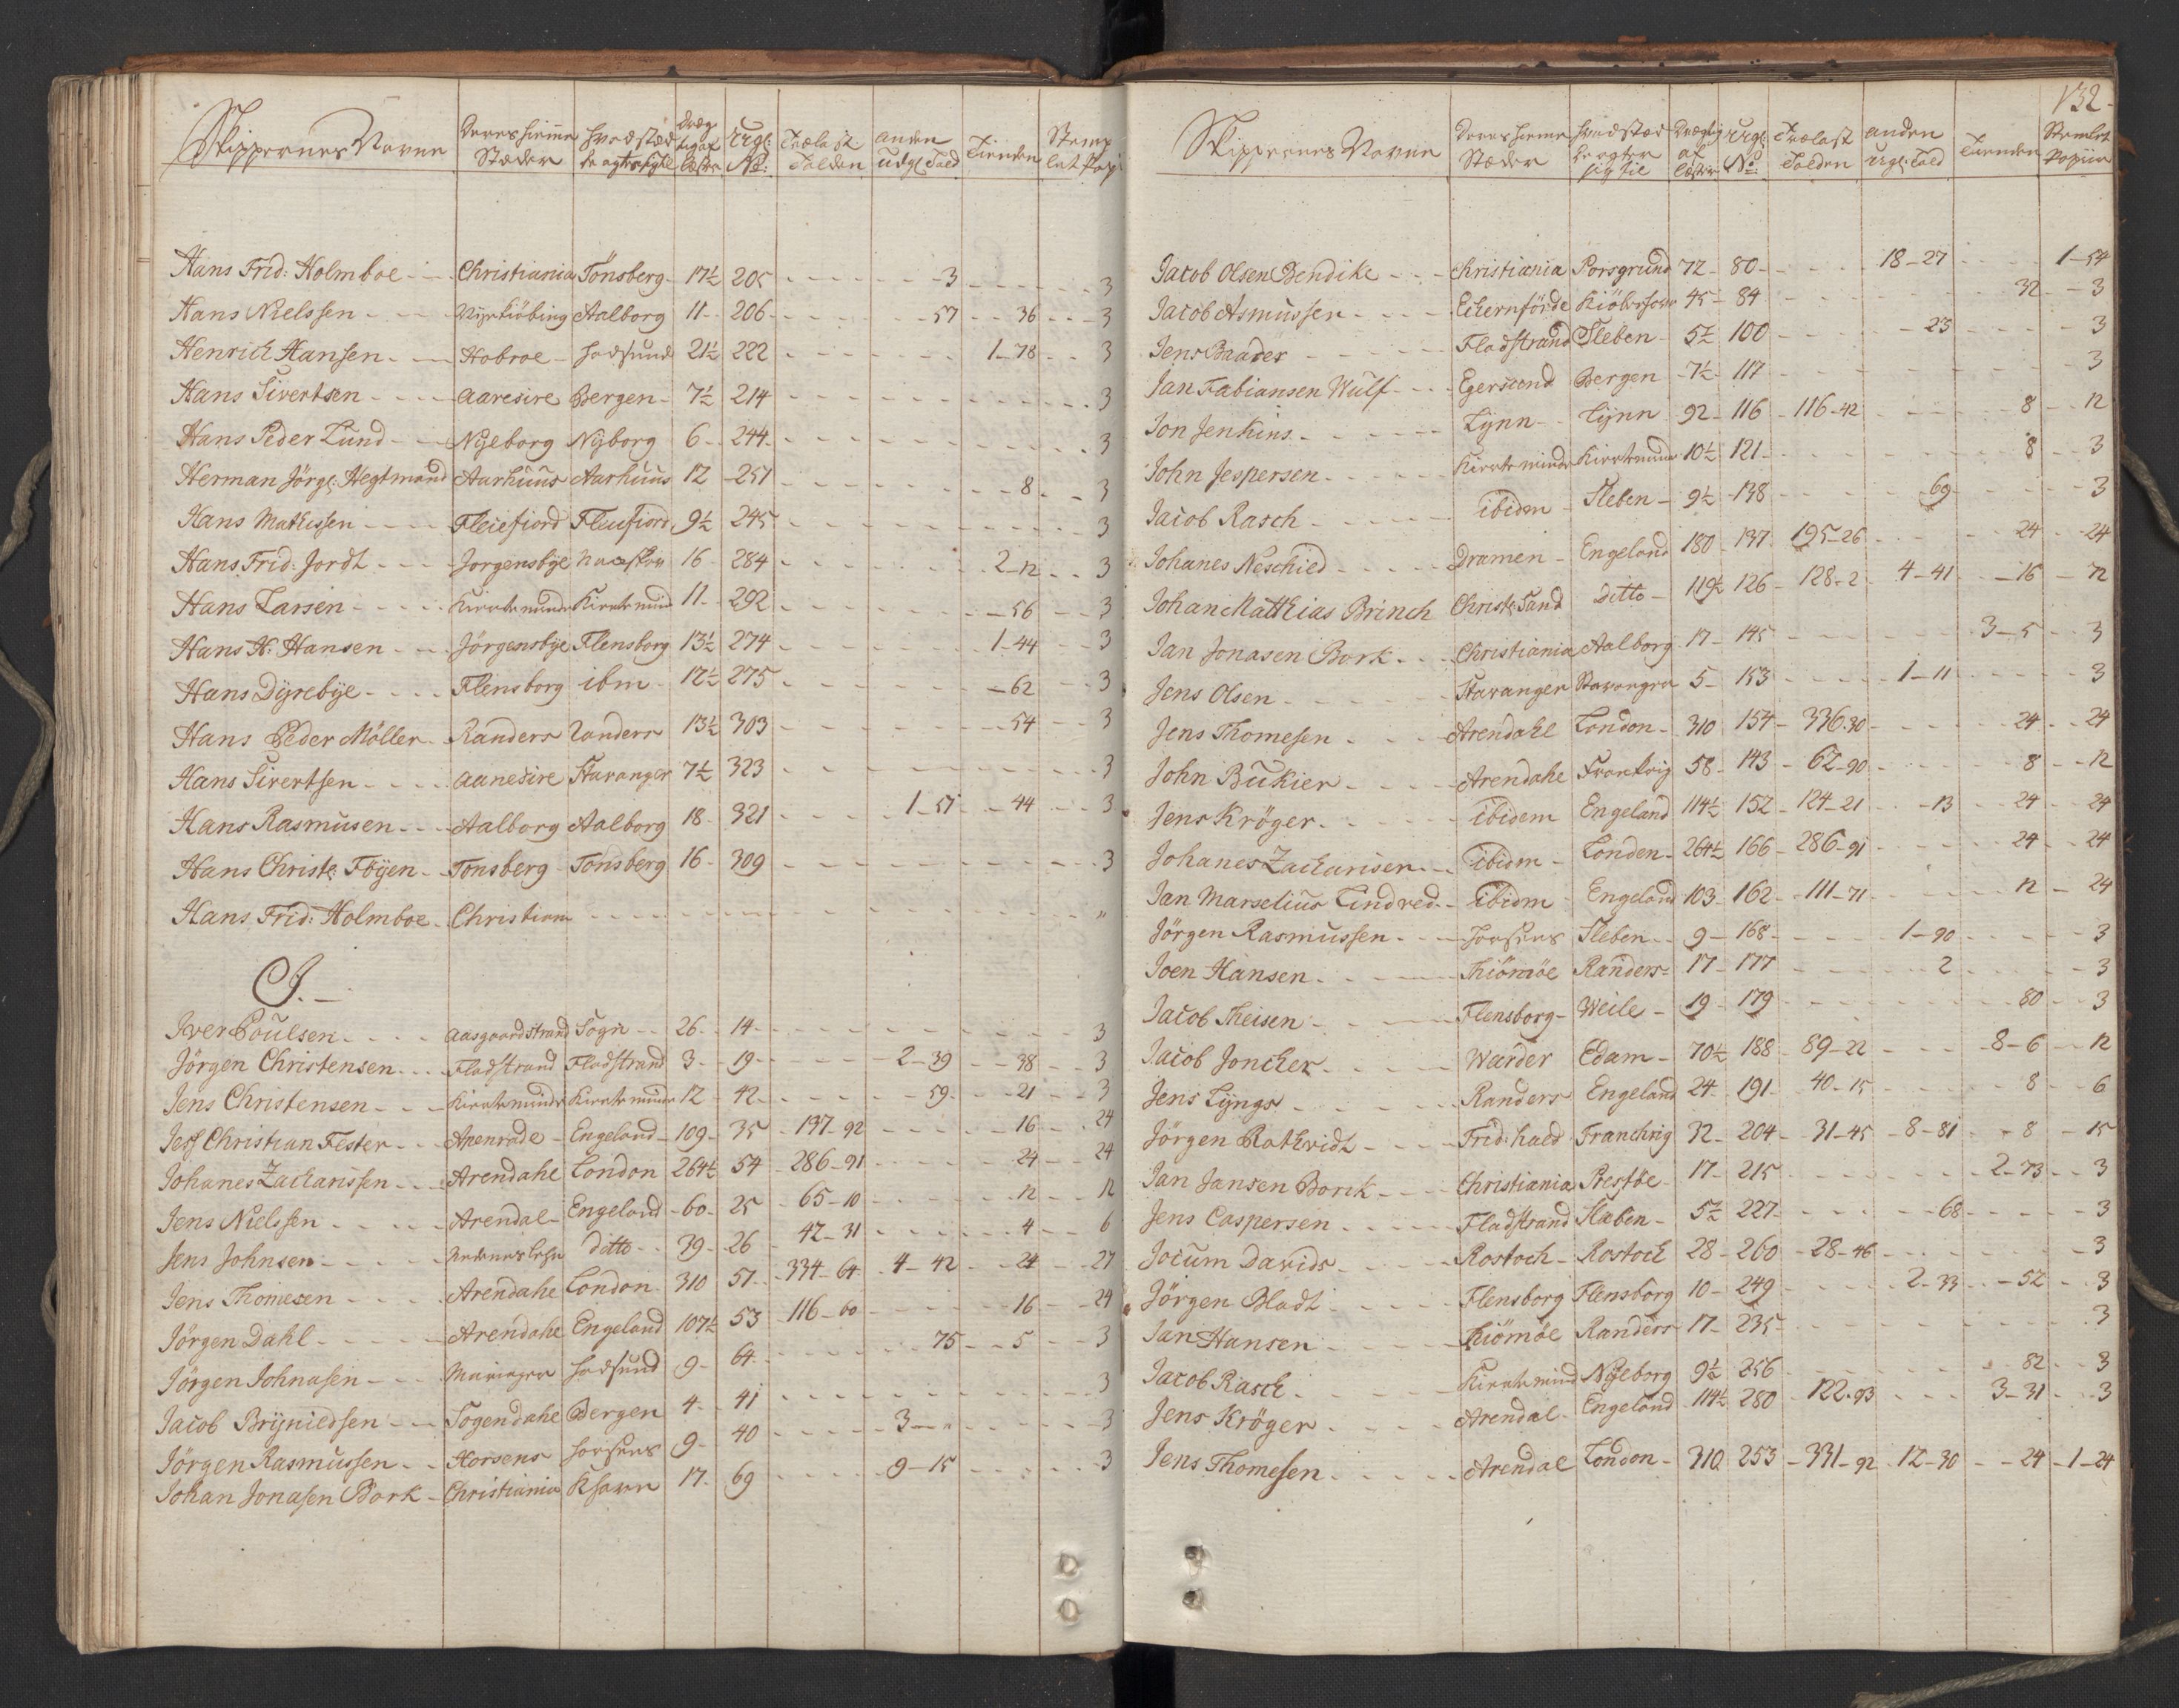 Skippernes Navne | Deres hiemme Stæder | hvad stæd de agter sig til | Dræg tig af læster | Udgl: No: | Trælast Tolden | anden udgl: Told | Tienden | Stemp let Pap
Hans Frid: Holmboe | Christiania | Tönsberg | 17½ | 205 | 3 | 3
Hans Nielssen | Nyekiöbing | Aalborg | 11 | 206 | 57 | 36 | 3
Henrich Hansen | Hobroe | hadsund | 21½ | 222 | 1-78 | 3
Hans Sivertsen | Aaresire | Bergen | 7½ | 214 | 3
Hans Peder Lund | Nyeborg | Nyborg | 6 | 244 | 3
Herman Jörg: Hegtmand | Aarhuus | Aarhuus | 12 | 251 | 8 | 3
Hans Mathissen | Fleiefiord | Fleiefiord | 9½ | 245 | 3
Hans Frid: Jordt | Jorgensbye | Naskov | 16 | 284 | 2-12 | 3
Hans Larsen | Kierteminde | Kierteminde | 11 | 292 | 56 | 3
Hans H: Hansen | Jörgensbye | Flensborg | 13½ | 274 | 1-44 | 3
Hans Dyrebye | Flensborg | ibm | 12½ | 275 | 62 | 3
Hans Peder Möller | Randers | Randers | 13½ | 303 | 54 | 3
Hans Sivertsen | aanesire | Stavanger | 7½ | 323 | 3
Hans Rasmusen | Aalborg | Aalborg | 18 | 321 | 1-51 | 44 | 3
Hans Christ: Föyen | Tonsberg | Tonsberg | 16 | 309 | 3
Hans Frid: Holmboe | Christiania | "
J.
Iver Poulsen | Aasgaardstrand | Sogn | 26 | 14 | 3
Jörgen Christensen | Fladstrand | Fladstrand | 3 | 19 | 2-39 | 38 | 3
Jens Christensen | Kierteminde | Kierteminde | 12 | 42 | 59 | 21 | 3
Jess Christian Fester | Apenrade | Engeland | 109 | 35 | 137-92 | 16 | 24
Johanes Zacharissen | Arendahl | London | 264½ | 54 | 286-91 | 24 | 24
Jens Nielssen | Arendal | Engeland | 60 | 25 | 65-10 | 12 | 12
Jens Johnsen | ditto | 39 | 26 | 42-31 | 4 | 6
Jens Thomesen | Arendahl | London | 310 | 51 | 334-64 | 4-42 | 24 | 27
Jörgen Dahl | Arendahl | Engeland | 107½ | 53 | 116-60 | 16 | 24
Jörgen Johnasen | Mariager | hadsund | 9 | 64 | 75 | 5 | 3
Jacob Bryniedsen | Sogendahl | Bergen | 4 | 41 | 3
Jörgen Rasmussen | Horsens | horsens | 9 | 40 | 3-" | 3
Johan Jonasen Bork | Christiania | Khavn | 17 | 69 | 9-15 | 3
132
Skippernes Navne | Deres hieme Stæder | hvad stæd de agter sig til | Drægtig af læster | Udgl: No: | Trælast Tolden | anden udgl: Told | Tienden | Stemlet Papiir
Jacob Olsen Bendike | Christiania | Porsgrund | 72 | 80 | 18-27 | 1-54
Jacob Asmussen | Eckernförde | Kiöbsham | 45 | 84 | 32 | 3
Jens Baader | Fladstrand | Fleben | 5½ | 100 | 23 | 3
Jan Fabiansen Wulf | Egersund | Bergen | 7½ | 117 | 3
Jon Jenkins | Lynn | Lynn | 92 | 116 | 116-42 | 8 | 12
John Jespersen | Kierteminde | Kierteminde | 10½ | 121 | 8 | 3
Jacob Rasch | ibidm | Fleben | 9½ | 138 | 69 | 3
Johanes Neschied | Dramen | Engeland | 180 | 137 | 195-26 | 24 | 24
Johan Matthias Brinch | Christ: Sand | ditto | 119½ | 126 | 128-2 | 4-41 | 16 | 72
Jan Jonasen Bork | Christiania | Aalborg | 17 | 145 | 3-5 | 3
Jens Olsen | Stavanger | Stavanger | 5 | 153 | 1-11 | 3
Jens Thomesen | Arendahl | London | 310 | 154 | 336-30 | 24 | 24
John Bukier | Arendahl | Frankrig | 58 | 143 | 62-90 | 8 | 12
Jens Kröger | ibidem | Engeland | 114½ | 152 | 124-21 | 13 | 24 | 24
Johanes Zacharisen | ibidm | London | 264½ | 166 | 286-91 | 24 | 24
Jan Marselius Lindved | ibidm | Engeland | 103 | 162 | 111-71 | 12 | 24
Jörgen Rasmussen | Horsens | Fleben | 9 | 168 | 1-90 | 3
Joen Hansen | Kiömöe | Randers | 17 | 177 | 2 | 3
Jacob Theisen | Flensborg | Weile | 19 | 179 | 80 | 3
Jacob Joncker | Warder | Edam | 70½ | 188 | 89-22 | 8-6 | 12
Jens Lyngs | Randers | Engeland | 24 | 191 | 40-15 | 8 | 6
Jörgen Rathvidt | Frid: hald | Franckrig | 32 | 204 | 31-45 | 8-81 | 8 | 15
Jan Jansen Borck | Christiania | Prestöe | 17 | 215 | 2-73 | 3
Jens Caspersen | Fladstrand | Flæben | 5½ | 227 | 68 | 3
Jocum Davids | Rostoch | Rostock | 28 | 260 | 28-46 | 3
Jörgen Bladt | Flensborg | Flensborg | 10 | 249 | 2-33 | 52 | 3
Jan Hansen | Kiömöe | Randers | 17 | 235 | 3
Jacob Rasch | Kierteminde | Nyeborg | 9½ | 256 | 82 | 3
Jens Kröger | Arendal | Engeland | 114½ | 280 | 122-93 | 3-31 | 3
Jens Thomesen | Arendal | London | 310 | 253 | 331-92 | 12-30 | 24 | 1-24